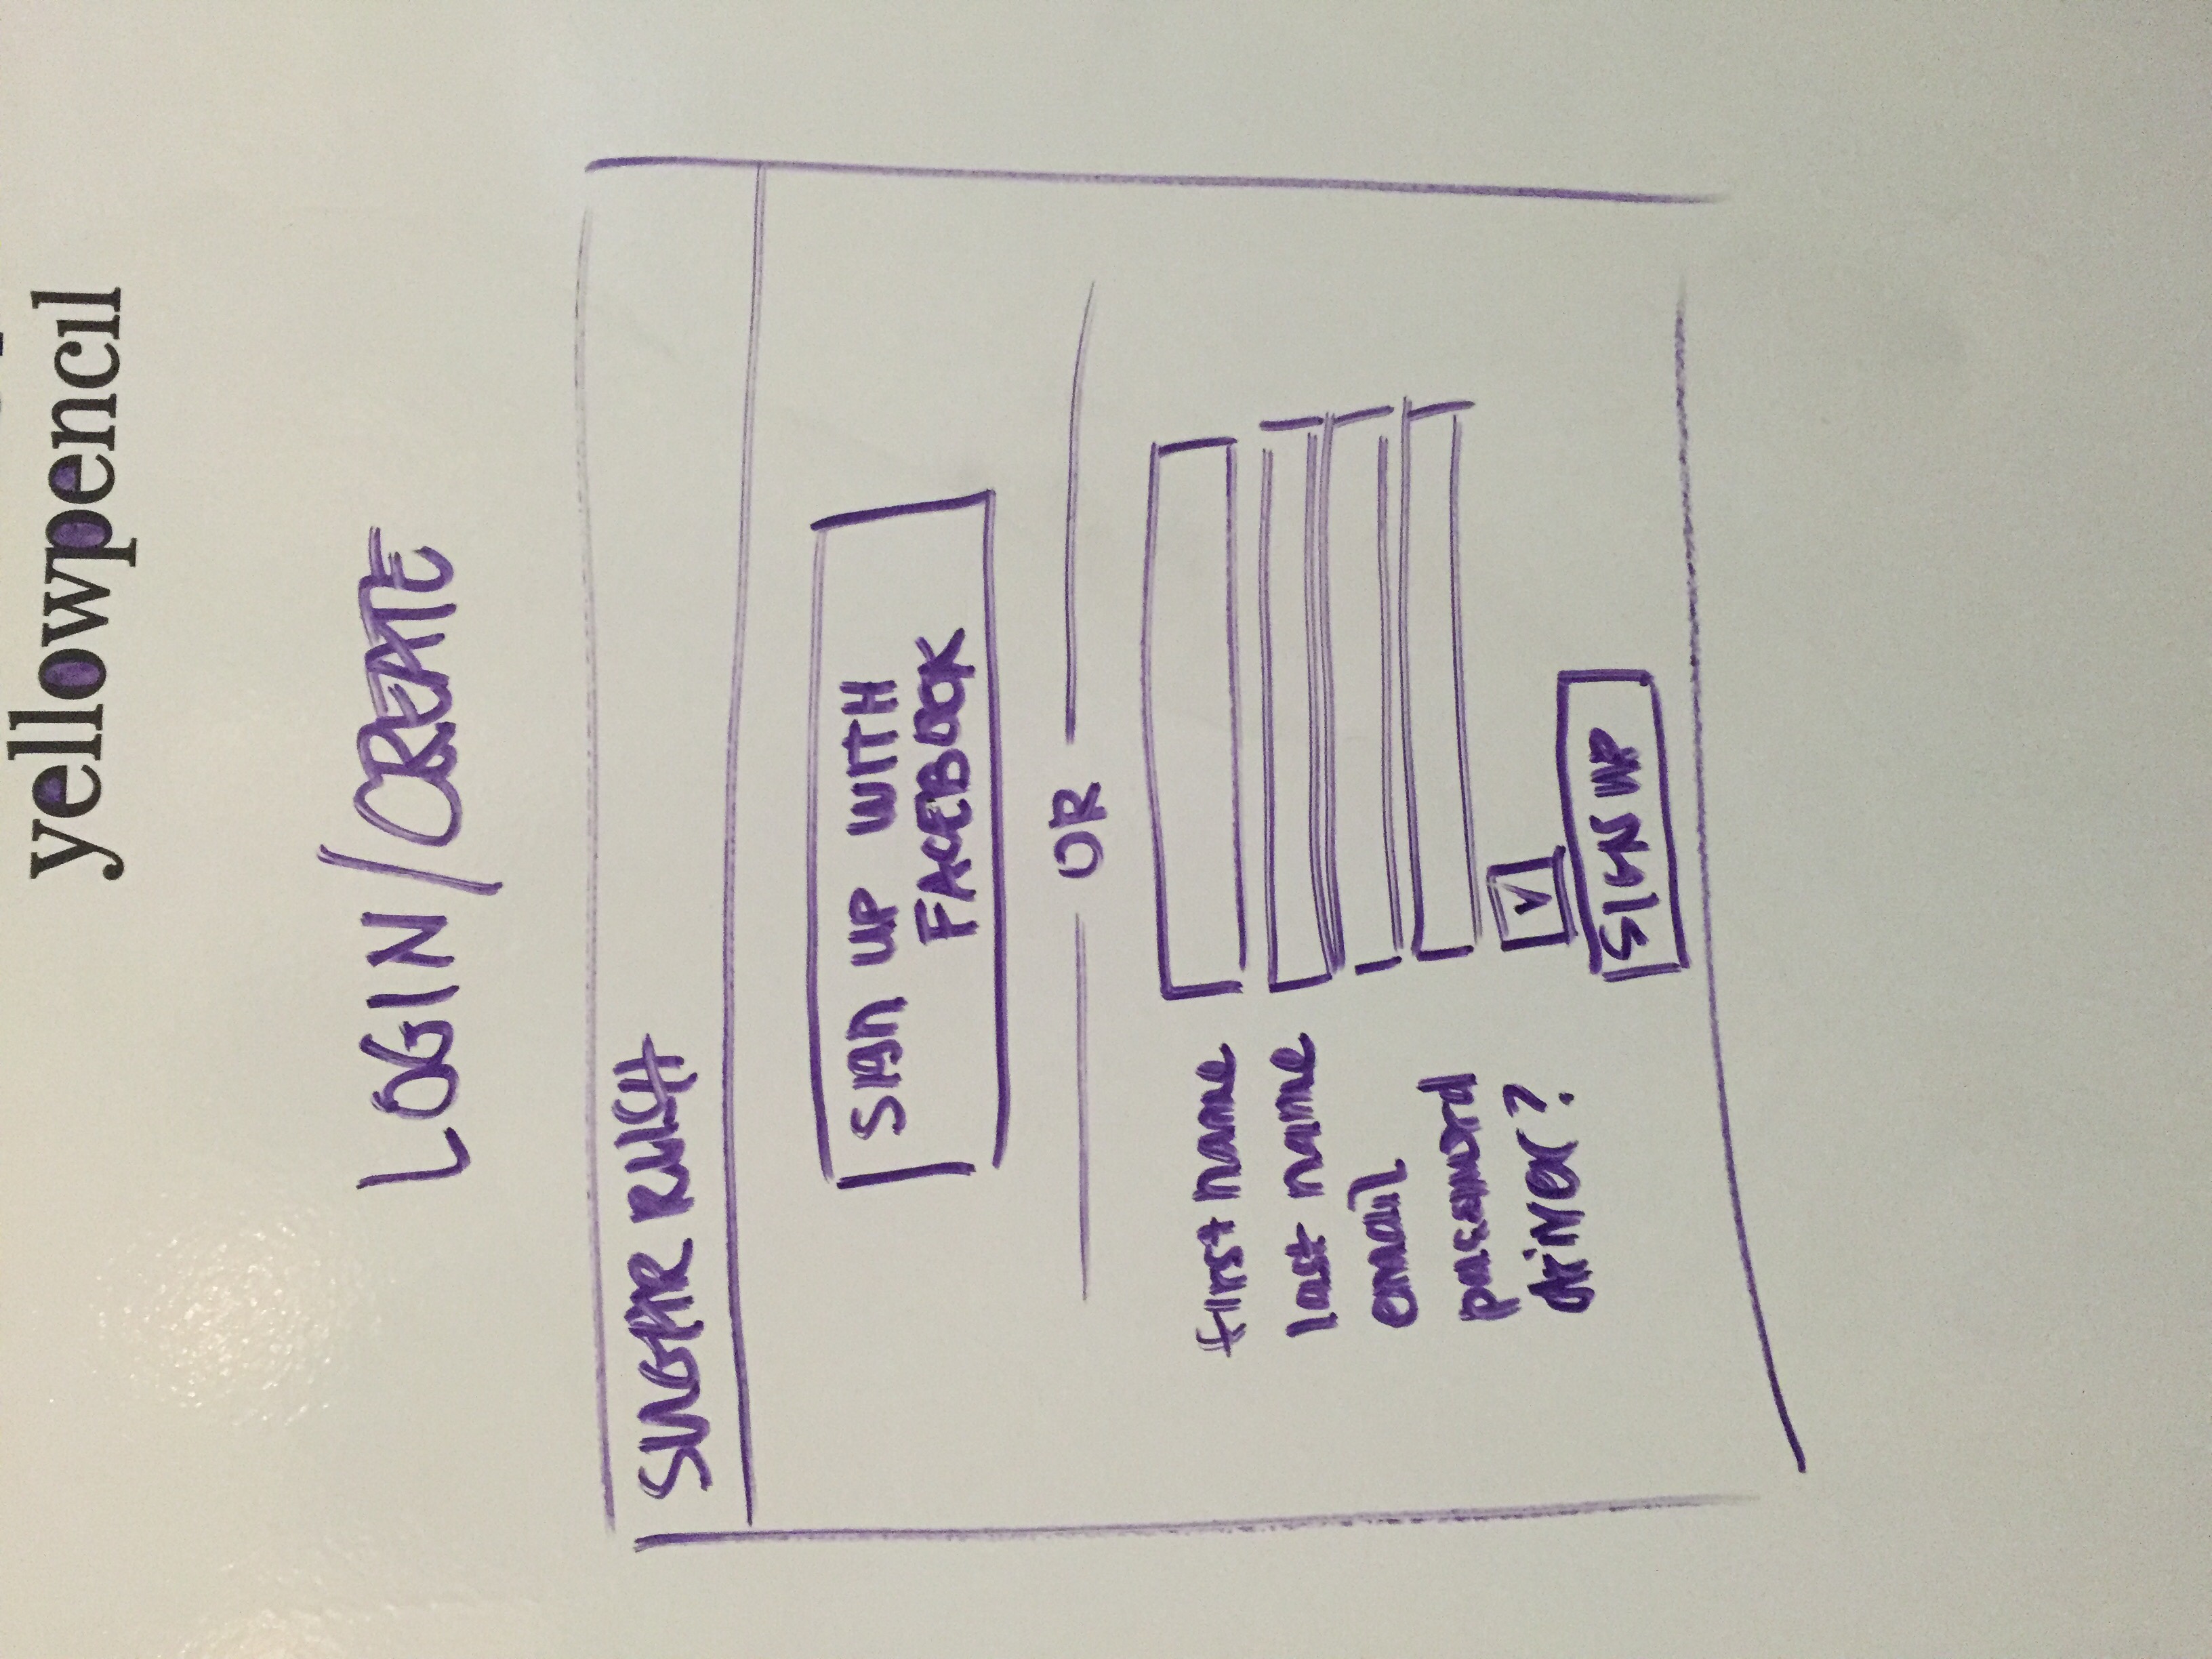 yellowpencil
LOGIN/CREATE
SUGAR RUSH
SIgn UP WITH
FACEBOOK
OR
first name
last name
email
password
driver?
SIGN UP